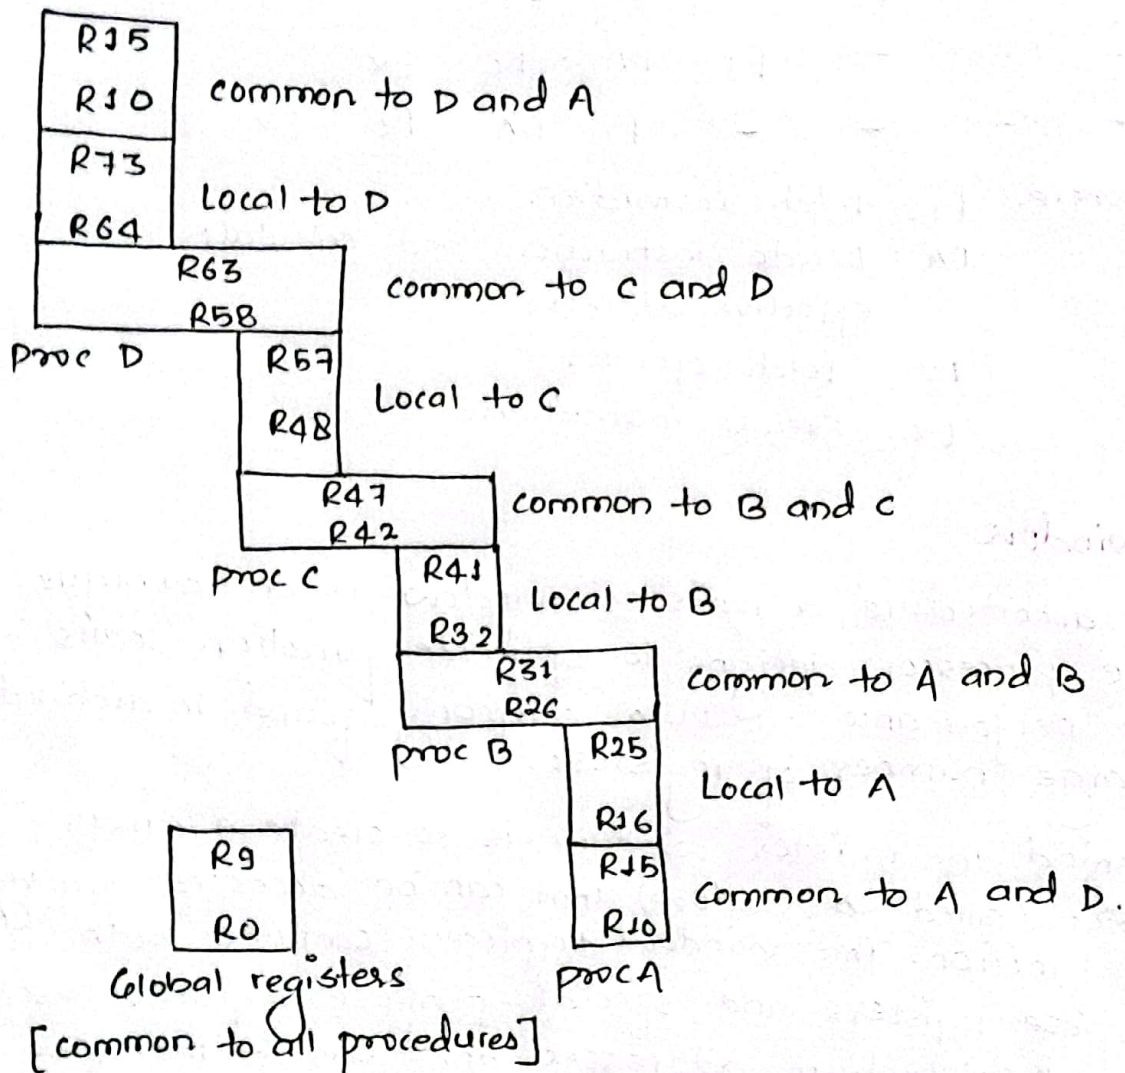 R15
R10
common to D and A
R73
R64
Local to D
R63
R58
common to C and D
Proc D
R57
R48
Local to C
R47
R42
common to B and C
proc C
R41
R32
Local to B
R31
R26
common to A and B
proc B
R25
R16
Local to A
R15
R10
common to A and D.
proc A
R9
R0
Global registers
[common to all procedures]